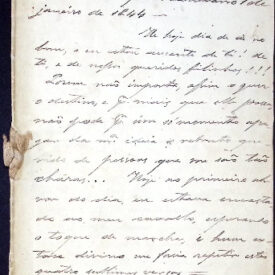 janeiro de 1844 —
He hoje dia de an
no bom, e eu estou auzente de ti! de
ti, e de nosso queridos filinhos!!!
Porem não importa, assim o quer
o destino, e q. mais que elle possa
não pode q. um só momento apa
gar da m.ª ideia o retrato que
rido de pessoas que me são tão
charas... Hoje no primeiro al
vor do dia, eu estava encosta
do ao meu cavallo, esperando
o toque de marcha, e huma es
divino me fazia repetir estes
quatro ultimos versos —